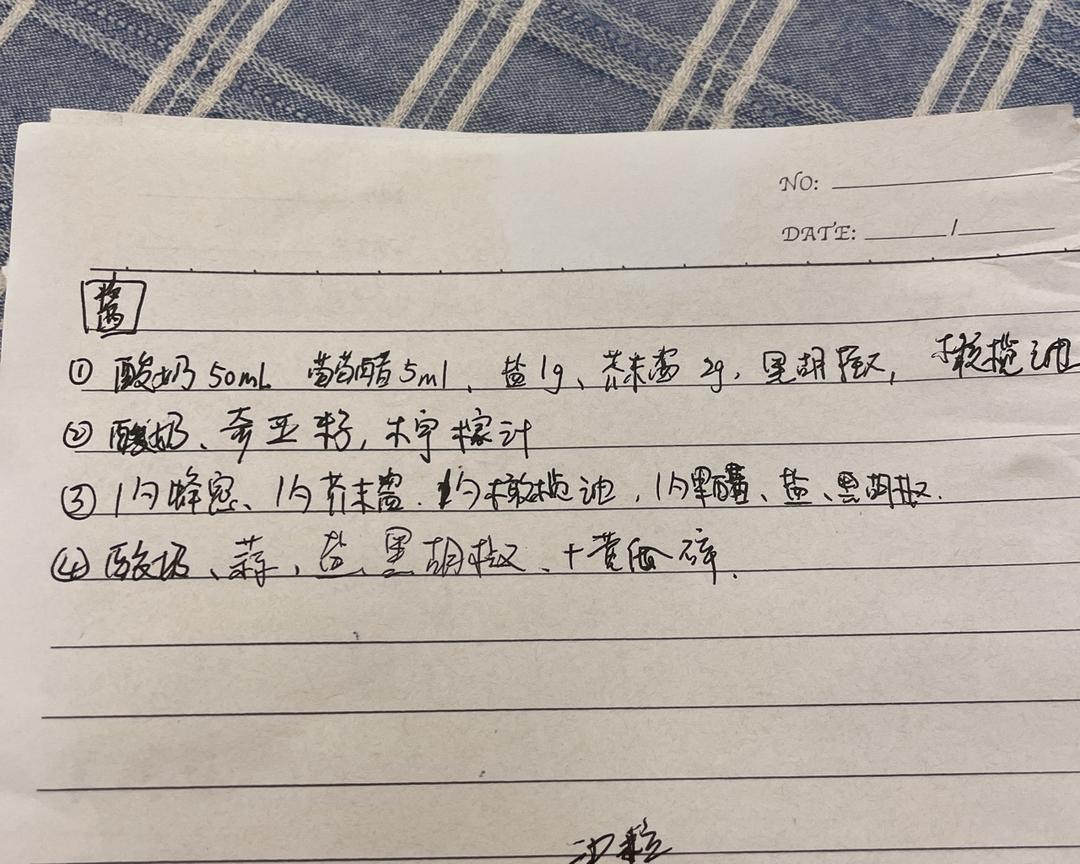 NO:
DATE: /
酱
① 酸奶 50ml 葡萄醋 5ml、盐 1g、芥末酱 2g, 黑胡椒, 橄榄油
② 酸奶、奇亚籽, 柠檬汁
③ 1勺蜂蜜、1勺芥末酱. 1勺橄榄油, 1勺黑醋、盐、黑胡椒.
④ 酸奶、蒜、盐、黑胡椒、+黄瓜碎.